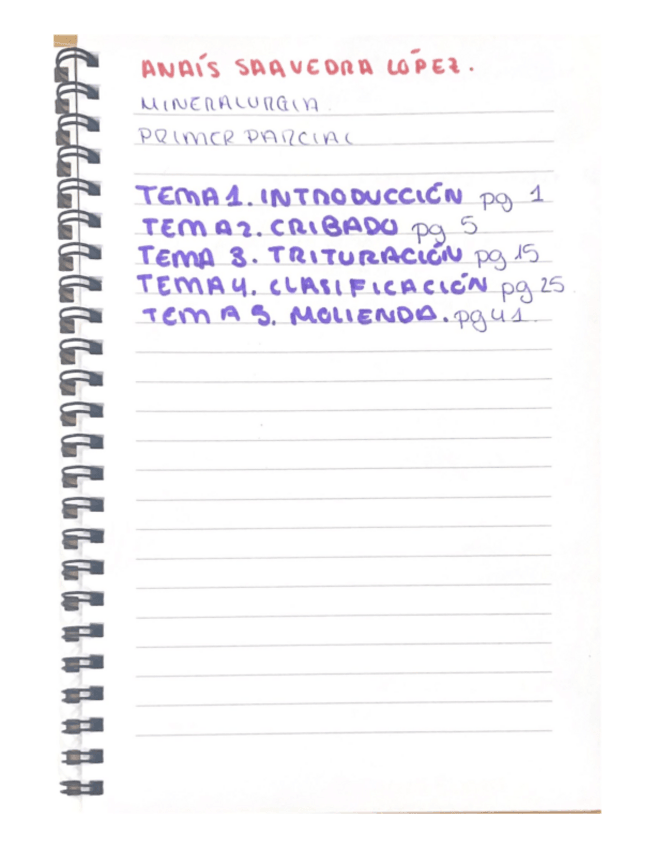 ANAÍS SAAVEDRA LÓPEZ.
MINERALURGIA.
PRIMER PARCIAL
TEMA 1. INTRODUCCIÓN pg 1
TEMA 2. CRIBADO pg 5
TEMA 3. TRITURACIÓN pg 15
TEMA 4. CLASIFICACIÓN pg 25
TEMA 5. MOLIENDA. pg 41.